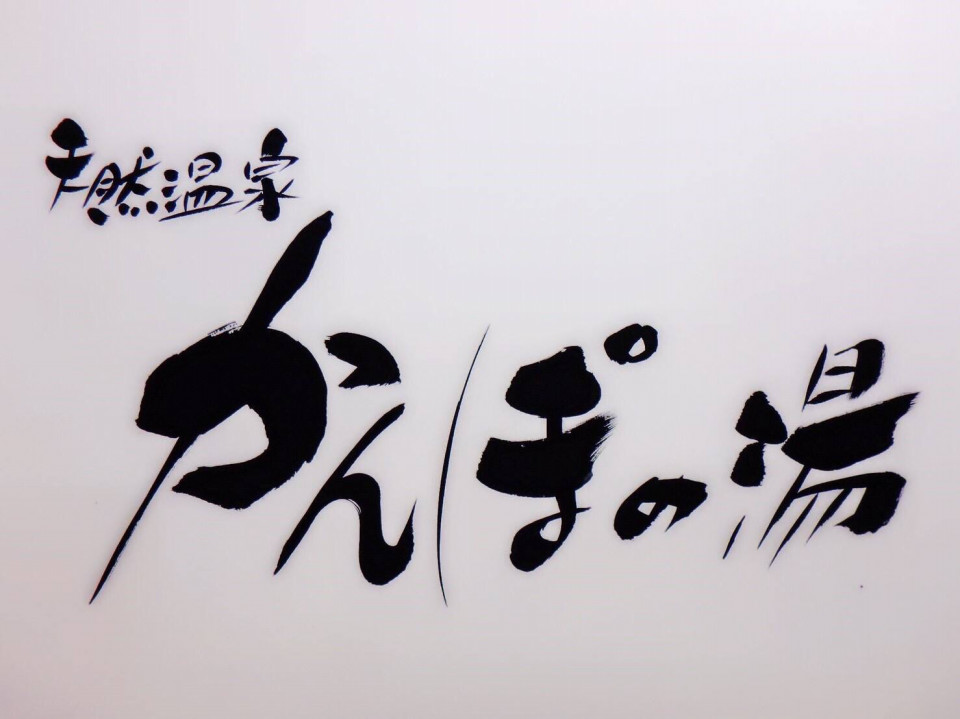 天然温泉
かんぽの湯